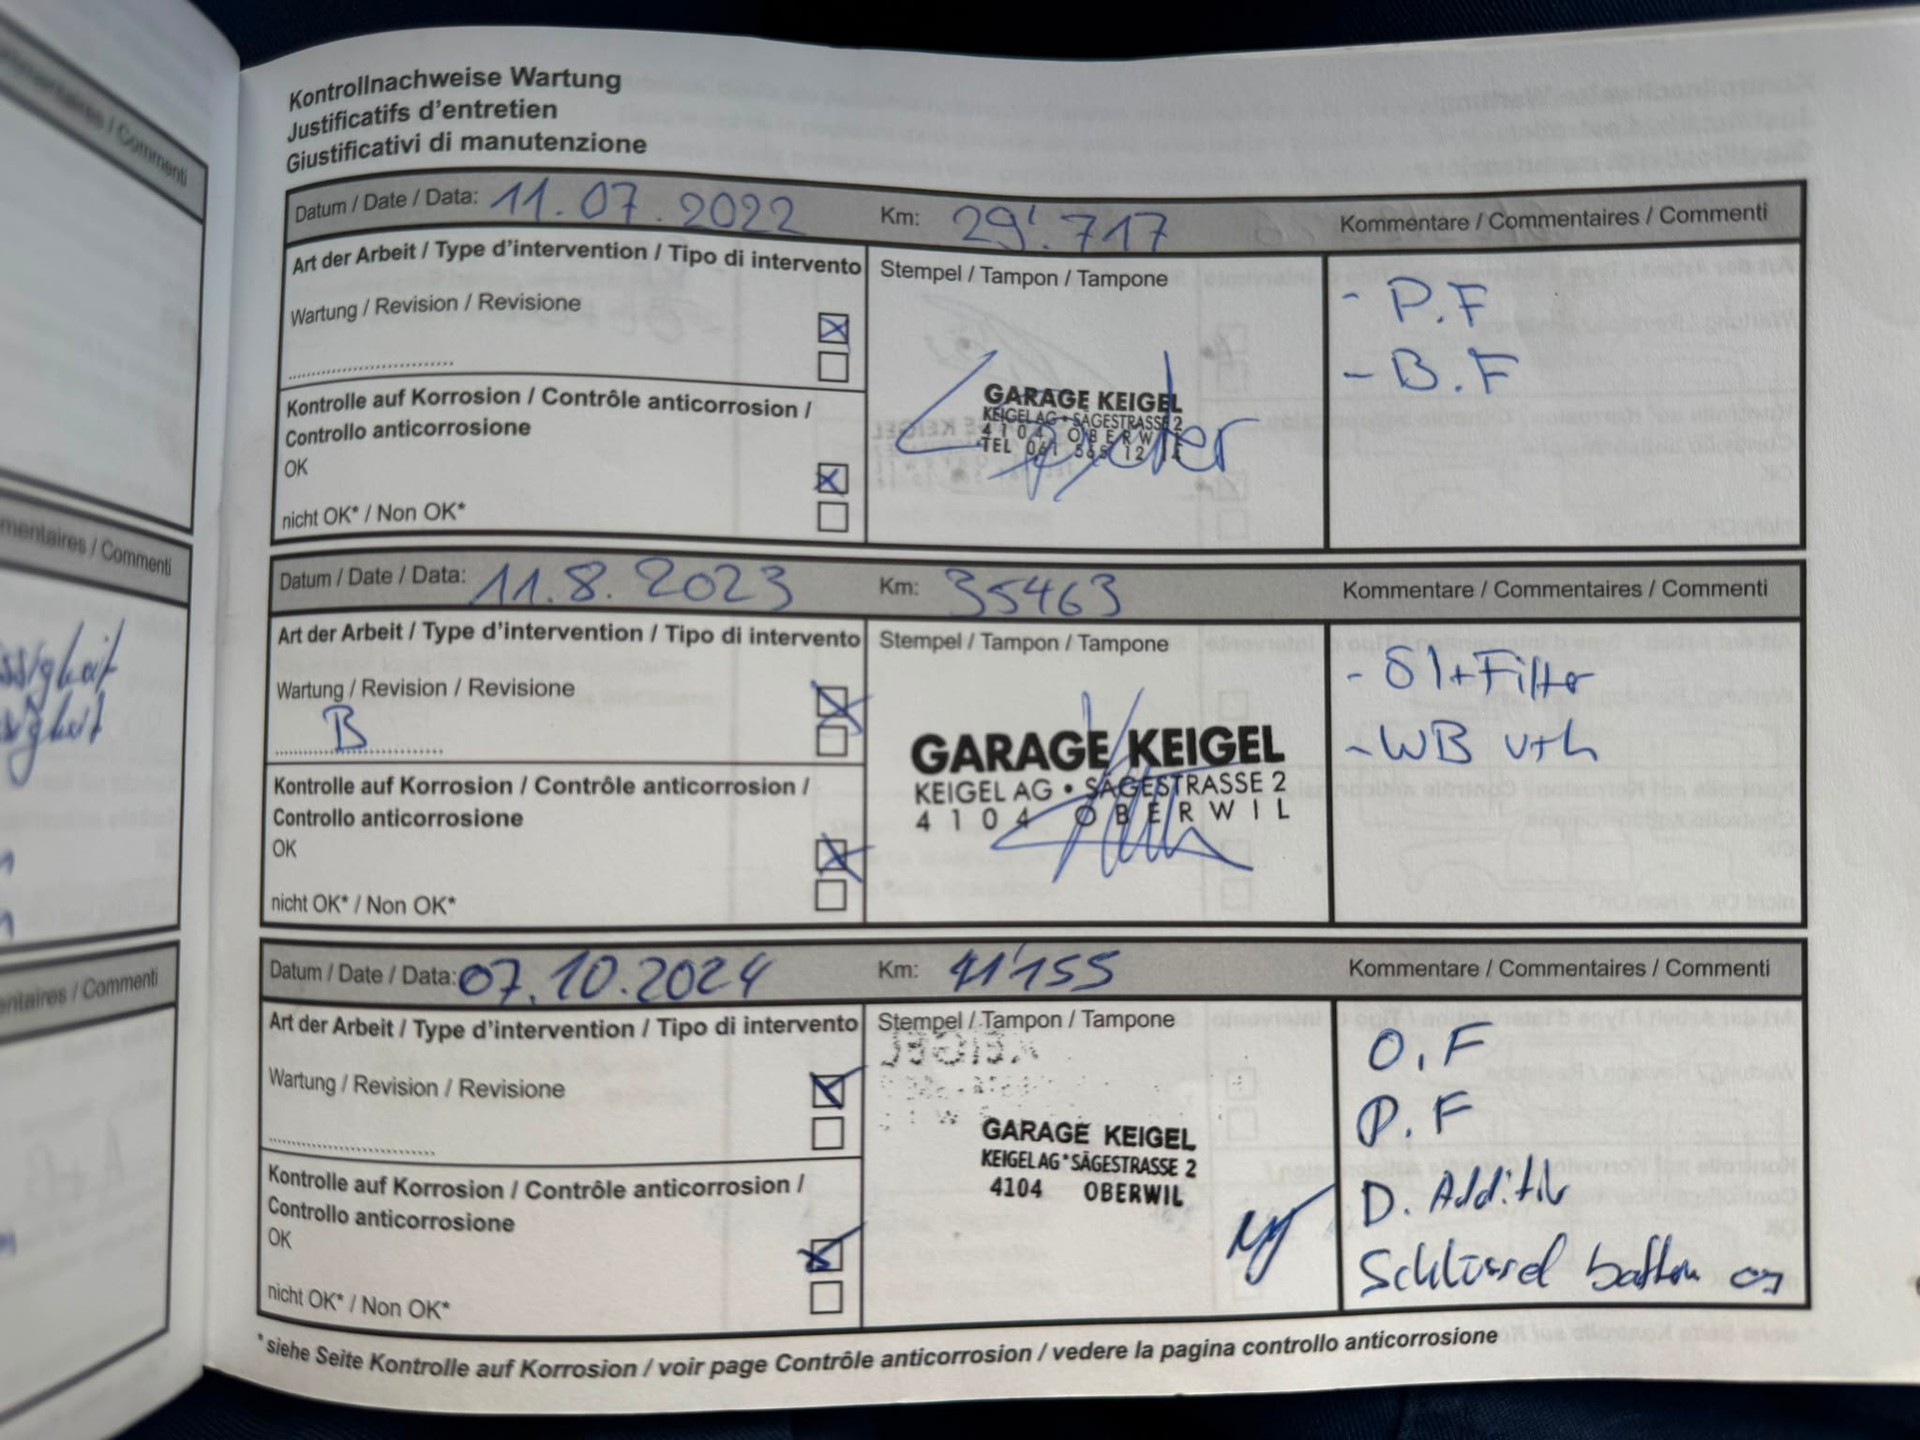 Kontrollnachweise Wartung
Justificatifs d'entretien
Giustificativi di manutenzione
Datum / Date / Data: 11.07.2022 Km: 29'.717 Kommentare / Commentaires / Commenti
Art der Arbeit / Type d'intervention / Tipo di intervento Stempel / Tampon / Tampone
- P.F
Wartung / Revision / Revisione
- B.F
GARAGE KEIGEL
KEIGEL AG • SÄGESTRASSE 2
4104 OBERWIL
TEL 061 565 12 14
Kontrolle auf Korrosion / Contrôle anticorrosion /
Controllo anticorrosione
OK
nicht OK* / Non OK*
Datum / Date / Data: 11.8.2023 Km: 35463 Kommentare / Commentaires / Commenti
Art der Arbeit / Type d'intervention / Tipo di intervento Stempel / Tampon / Tampone
- Öl+Filter
Wartung / Revision / Revisione
B
- WB v+h
GARAGE KEIGEL
KEIGEL AG • SÄGESTRASSE 2
4104 OBERWIL
Kontrolle auf Korrosion / Contrôle anticorrosion /
Controllo anticorrosione
OK
nicht OK* / Non OK*
Datum / Date / Data: 07.10.2024 Km: 41'155 Kommentare / Commentaires / Commenti
Art der Arbeit / Type d'intervention / Tipo di intervento Stempel / Tampon / Tampone
O.F
Wartung / Revision / Revisione
P.F
GARAGE KEIGEL
KEIGEL AG*SÄGESTRASSE 2
4104 OBERWIL
D. Additiv
Kontrolle auf Korrosion / Contrôle anticorrosion /
Controllo anticorrosione
OK
Schlüssel
nicht OK* / Non OK*
*siehe Seite Kontrolle auf Korrosion / voir page Contrôle anticorrosion / vedere la pagina controllo anticorrosione
mentaires / Commenti
entaires / Commenti